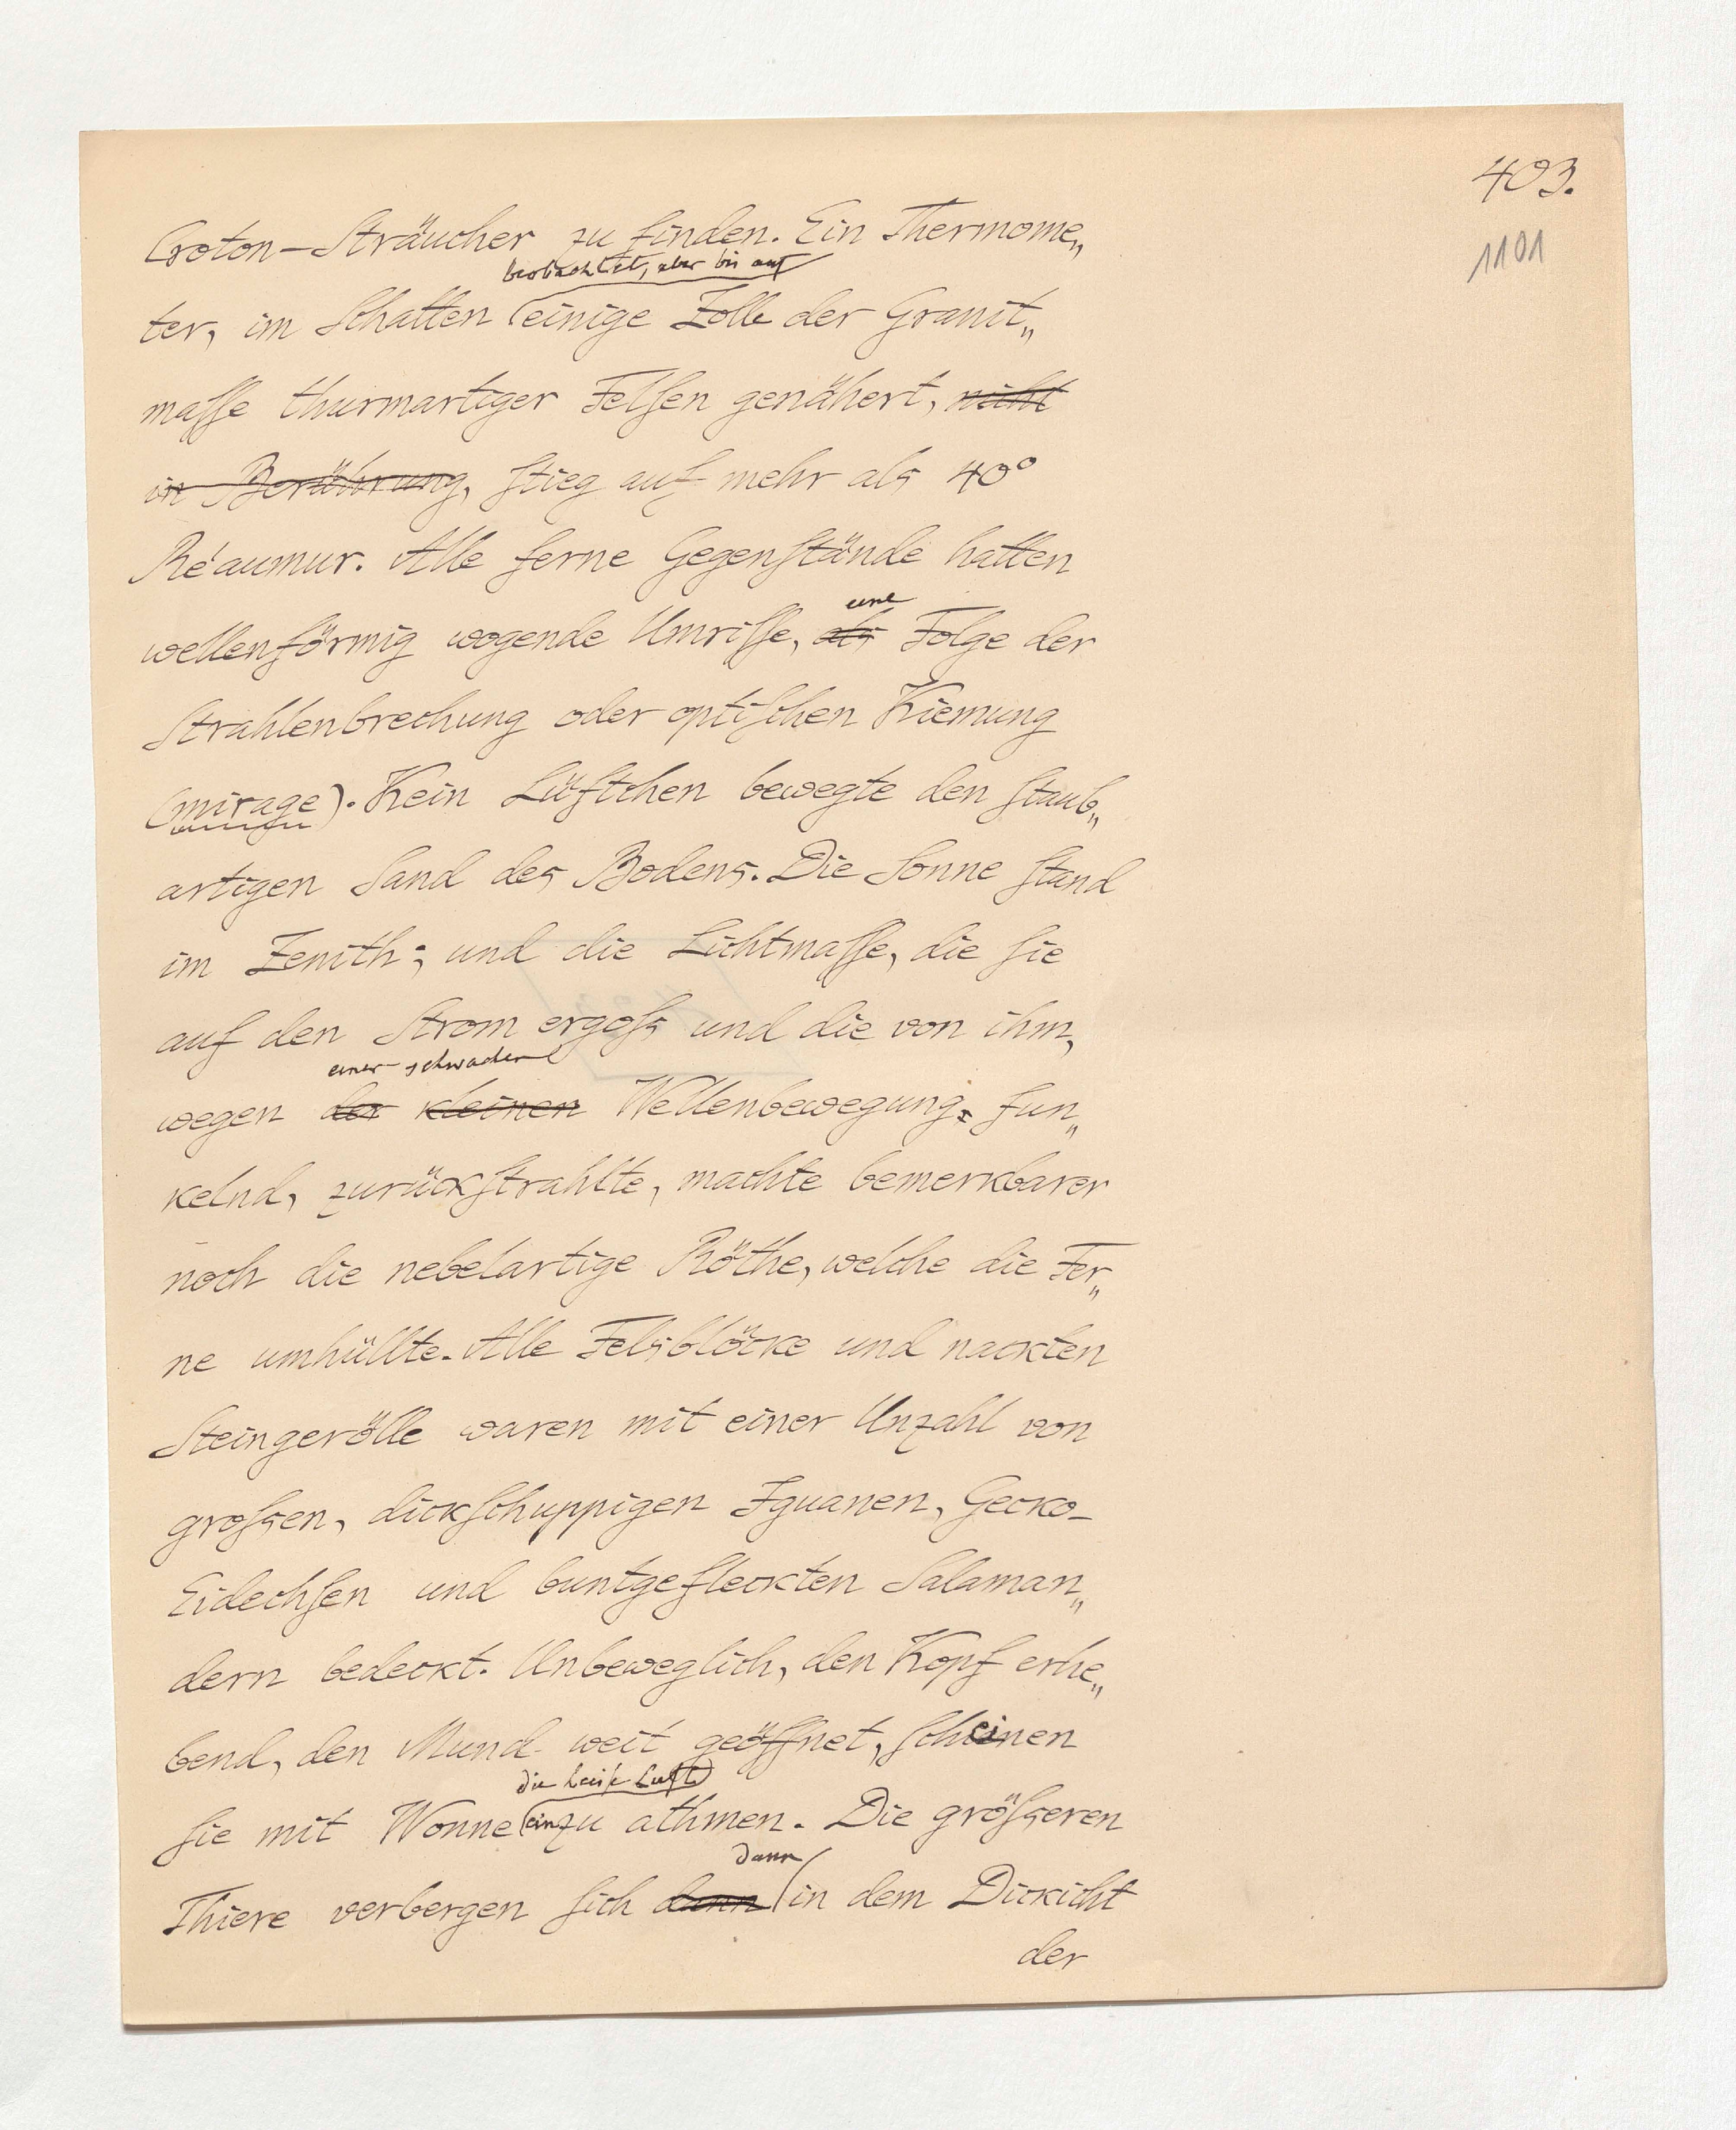 403.
1101
Croton-Sträucher zu finden. Ein Thermome„
beobachtet, aber bis auf
ter, im Schatten einige Zolle der Granit„
masse thurmartiger Felsen genähert, nicht
in Berührung, stieg auf mehr als 40°
Réaumur. Alle ferne Gegenstände hatten
eine
wellenförmig wogende Umrisse, als Folge der
Strahlenbrechung oder optischen Kiemung
(mirage). Kein Lüftchen bewegte den staub„
artigen Sand des Bodens. Die Sonne stand
im Zenith; und die Lichtmasse, die sie
auf den Strom ergoss und die von ihm,
einer schwachen
wegen der kleinen Wellenbewegung, fun„
kelnd, zurückstrahlte, machte bemerkbarer
noch die nebelartige Röthe, welche die Fer„
ne umhüllte. Alle Felsblöcke und nackten
Steingerölle waren mit einer Unzahl von
grossen, dickschuppigen Iguanen, Gecko-
Eidechsen und buntgefleckten Salaman„
dern bedeckt. Unbeweglich, den Kopf erhe„
bend, den Mund weit geöffnet, scheinen
die heiße Luft
sie mit Wonne einzu athmen. Die grösseren
dann
Thiere verbergen sich dann in dem Dickicht
der